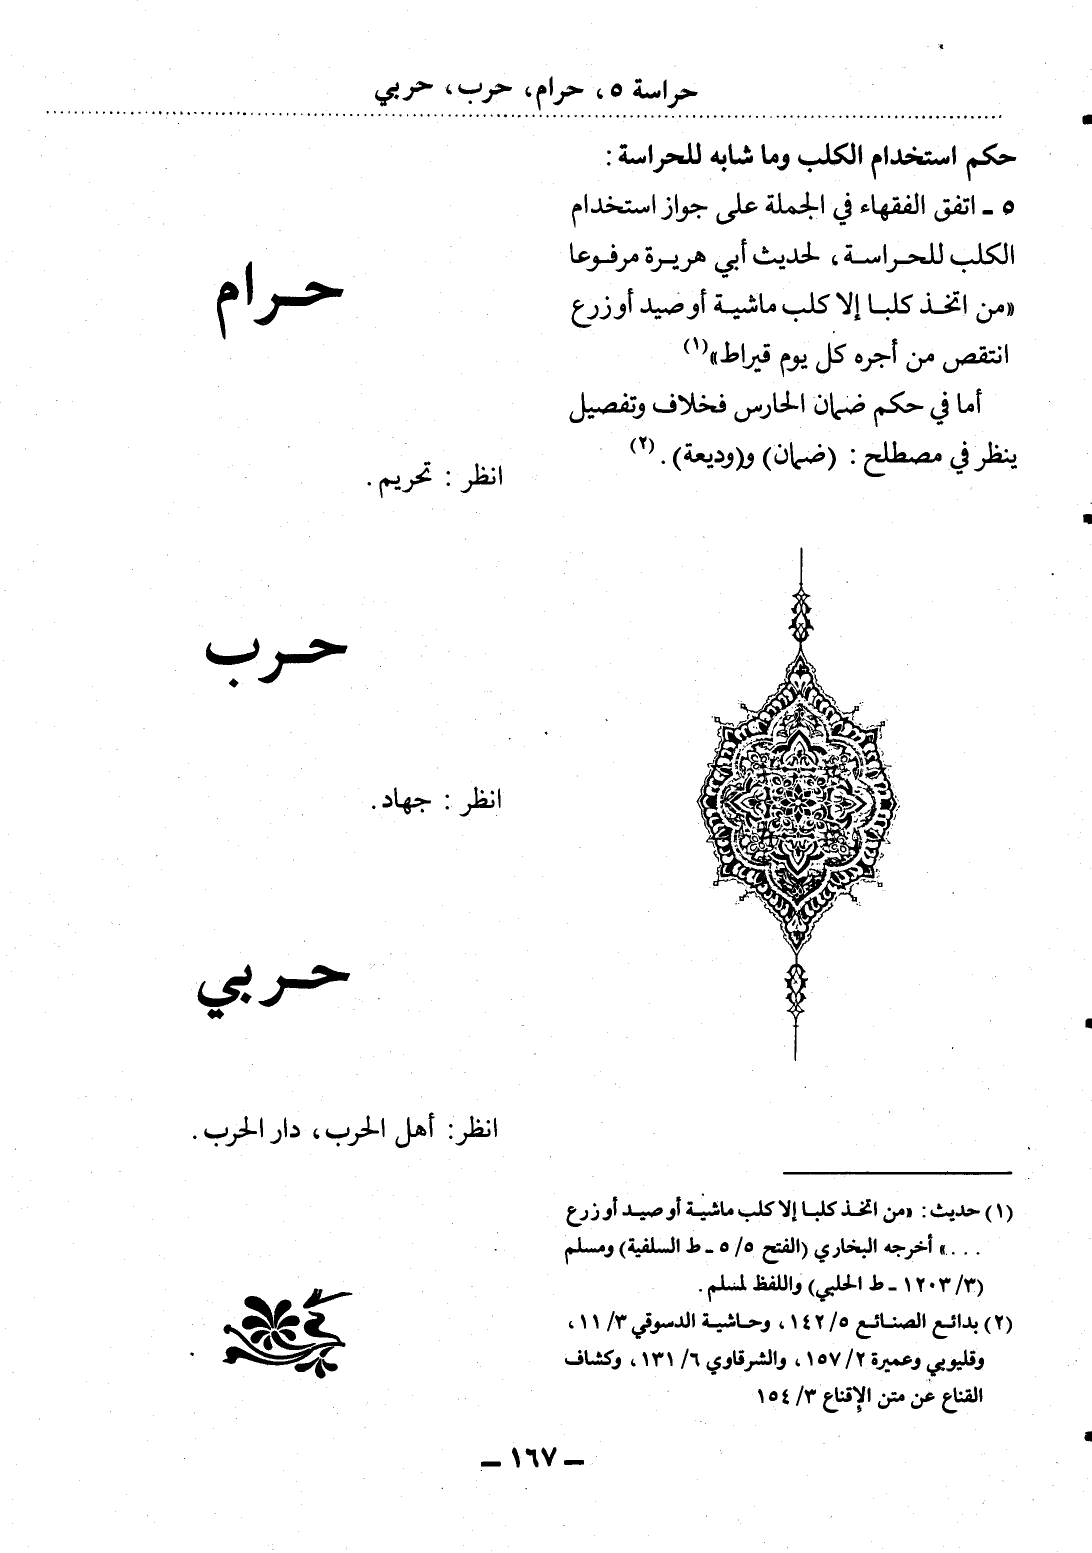 حراسة ٥، حرام، حرب، حربي
حكم استخدام الكلب وما شابه للحراسة :
٥ ـ اتفق الفقهاء في الجملة على جواز استخدام
الكلب للحراسة، لحديث أبي هريرة مرفوعا
«من اتخذ كلبا إلا كلب ماشية أو صيد أو زرع
انتقص من أجره كل يوم قيراط»(١)
أما في حكم ضمان الحارس فخلاف وتفصيل
ينظر في مصطلح : (ضمان) و(وديعة).(٢)
(١) حديث : «من اتخذ كلبا إلا كلب ماشية أو صيد أو زرع
. . .» أخرجه البخاري (الفتح ٥/ ٥ ـ ط السلفية) ومسلم
(٣/ ١٢٠٣ ـ ط الحلبي) واللفظ لمسلم.
(٢) بدائع الصنائع ٥/ ١٤٢، وحاشية الدسوقي ٣/ ١١،
وقليوبي وعميرة ٢/ ١٥٧، والشرقاوي ٦/ ١٣١، وكشاف
القناع عن متن الإقناع ٣/ ١٥٤
حرام
انظر : تحريم.
حرب
انظر : جهاد.
حربي
انظر: أهل الحرب، دار الحرب.
ـ ١٦٧ ـ